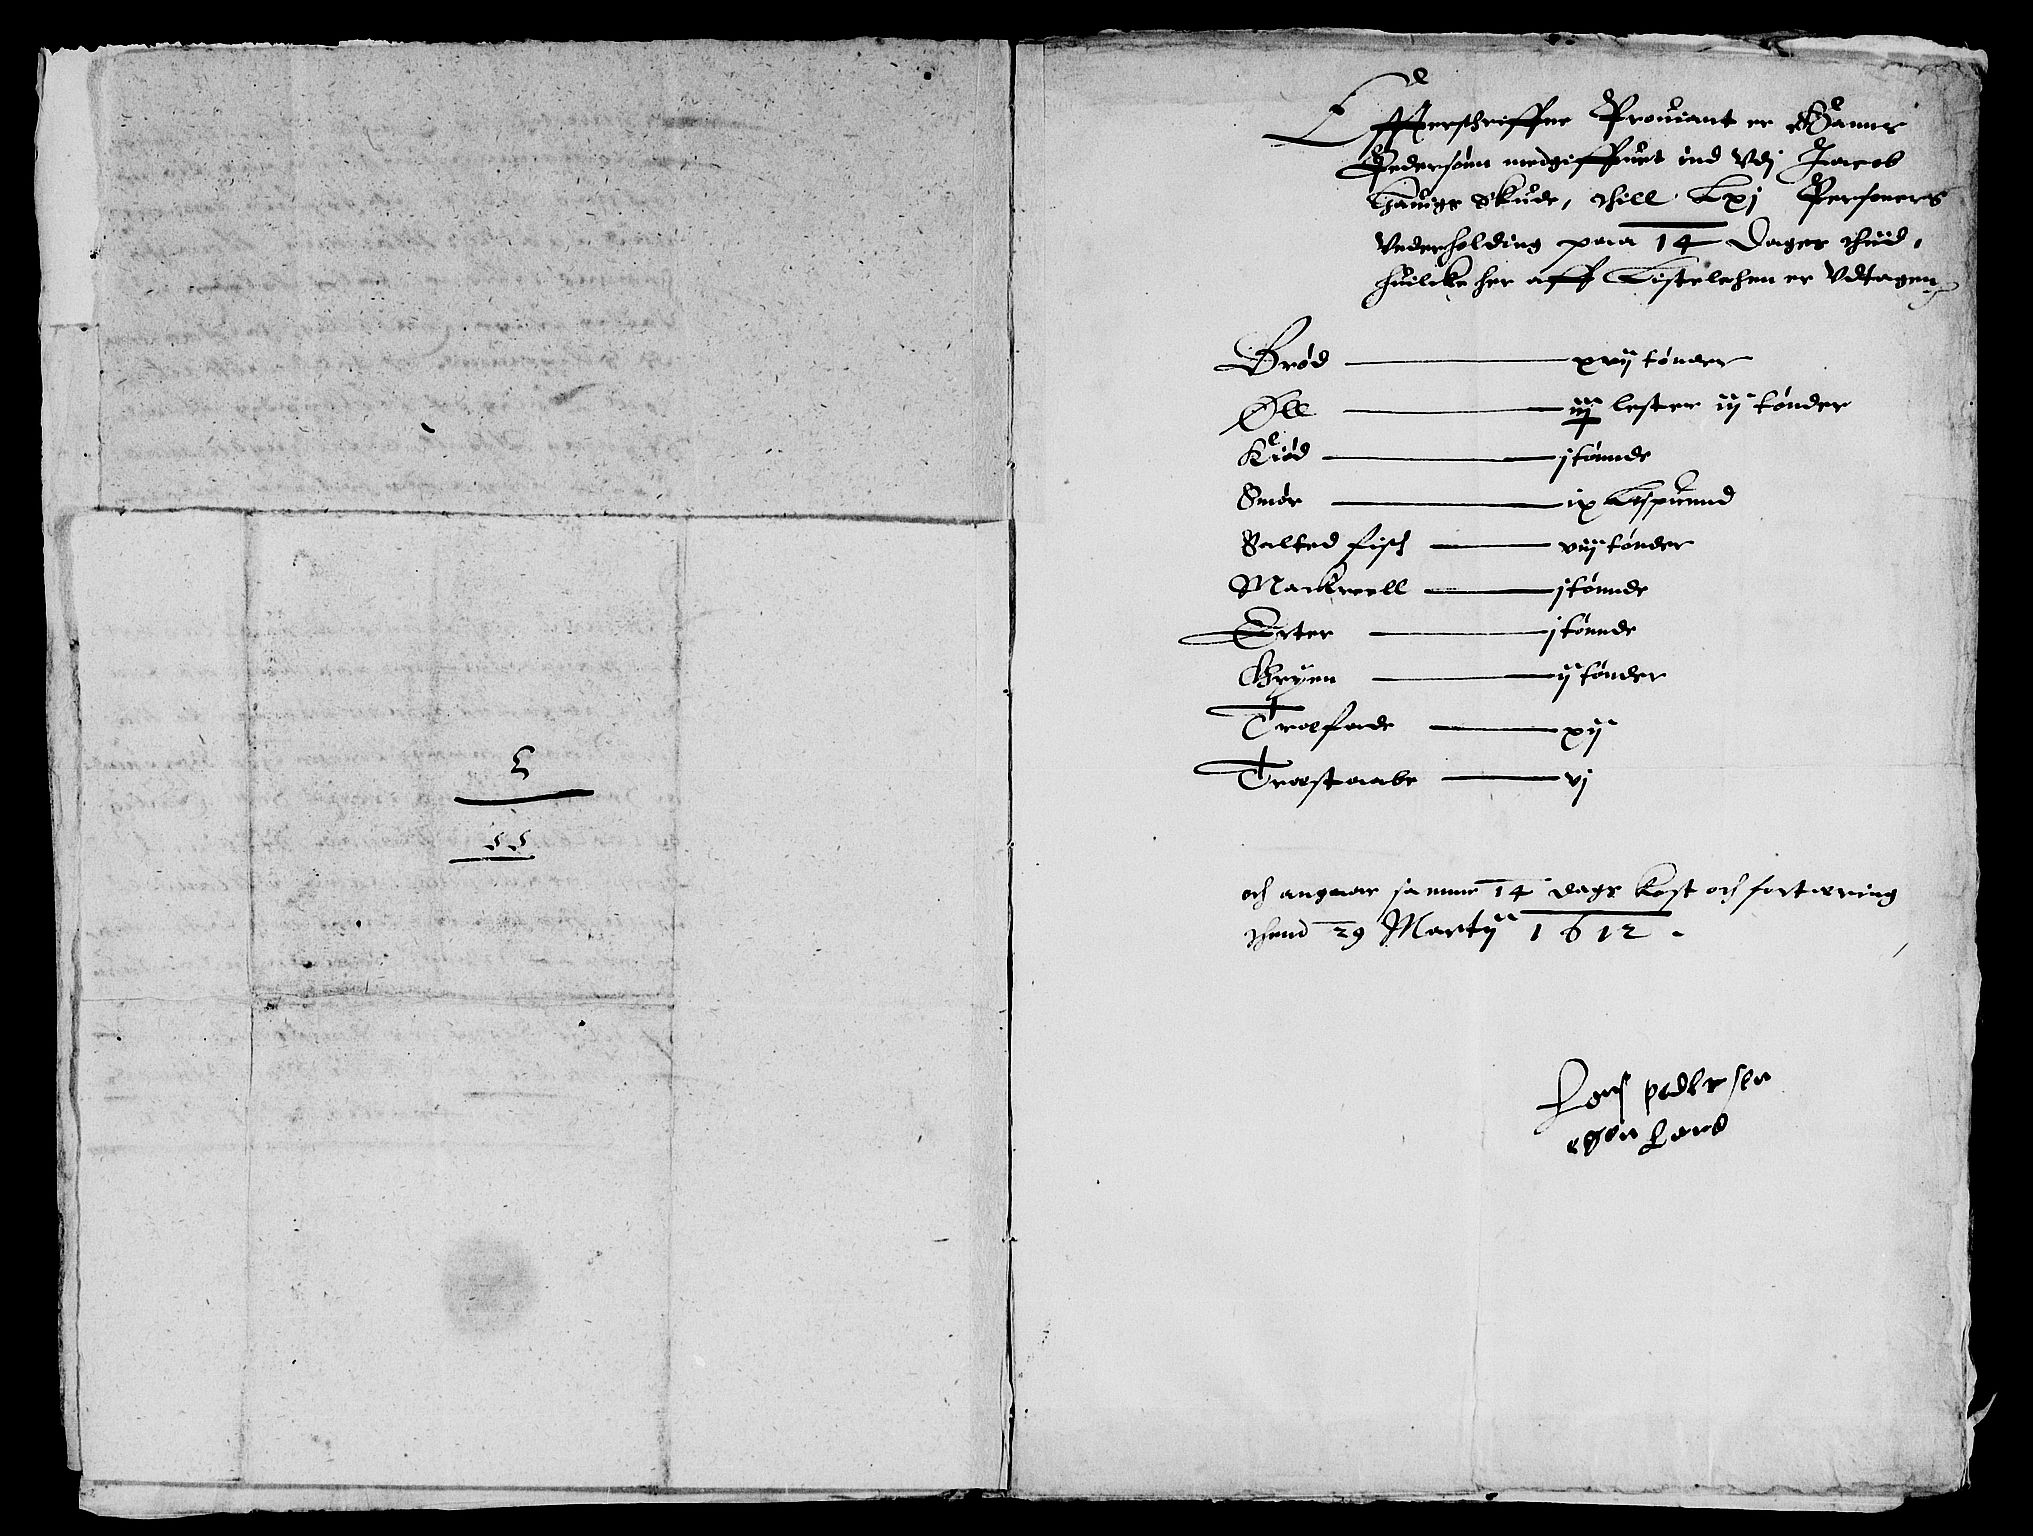 Effterschreffne Prouiant er Hanns
Pedersønn medgiffuet ind vdj Jacob
skude, thill Lxj Personers
Vnderholding paa 14 Dagers thiid,
huilcke her aff Listelehen er vdtagen
Brød xvij tønder
Øll iiij lester iij tønder
Kiød j tønnde
Smør ix Lispunnd
Salted fisch viij tønder
Mackreell j tønnde
Erter j tønnde
Gryen ij tønder
Træfade xij
Træstaabe vj
och anguar samme 14 dags kost och fortæring
thend 29 Martij 1612.
pedersen
egen hand